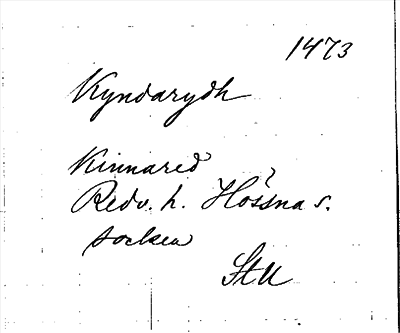 1473
Kyndarydh
Kinnared
Redv. h. Hössna s.
socken
StU